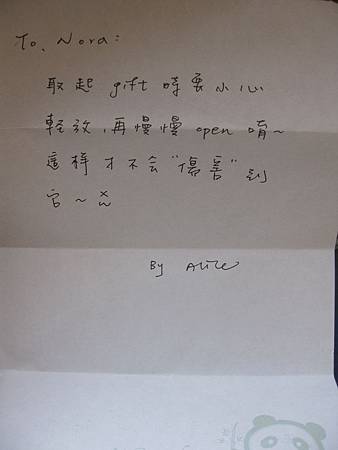 To. Nora:
取起 gift 時要小心
輕放,再慢慢 open 唷~
這樣才不会"傷害"到
它~
By Alice